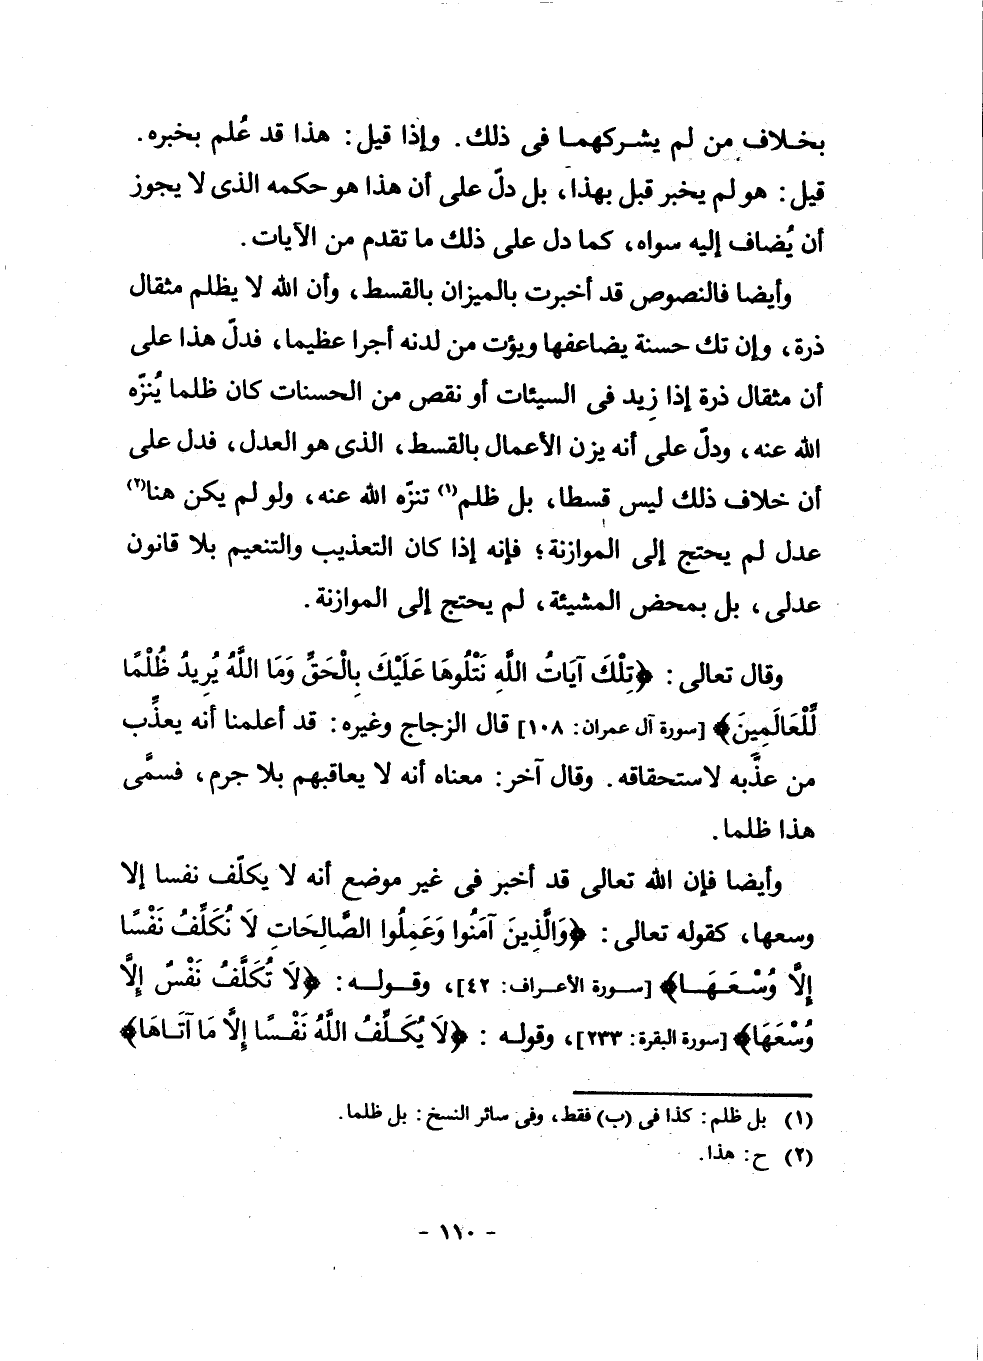 بخلاف من لم يشركهما فى ذلك. وإذا قيل: هذا قد عُلم بخبره.
قيل: هو لم يخبر قبل بهذا، بل دلّ على أن هذا هو حكمه الذى لا يجوز
أن يُضاف إليه سواه، كما دل على ذلك ما تقدم من الآيات.
وأيضا فالنصوص قد أخبرت بالميزان بالقسط، وأن الله لا يظلم مثقال
ذرة، وإن تك حسنة يضاعفها ويؤت من لدنه أجرا عظيما، فدلّ هذا على
أن مثقال ذرة إذا زيد فى السيئات أو نقص من الحسنات كان ظلما يُنزّه
الله عنه، ودلّ على أنه يزن الأعمال بالقسط، الذى هو العدل، فدل على
أن خلاف ذلك ليس قسطا، بل ظلم(١) تنزّه الله عنه، ولو لم يكن هنا(٢)
عدل لم يحتج إلى الموازنة؛ فإنه إذا كان التعذيب والتنعيم بلا قانون
عدلى، بل بمحض المشيئة، لم يحتج إلى الموازنة.
وقال تعالى: ﴿تِلْكَ آيَاتُ اللَّهِ نَتْلُوهَا عَلَيْكَ بِالْحَقِّ وَمَا اللَّهُ يُرِيدُ ظُلْمًا
لِّلْعَالَمِينَ﴾ [سورة آل عمران: ١٠٨] قال الزجاج وغيره: قد أعلمنا أنه يعذّب
من عذّبه لاستحقاقه. وقال آخر: معناه أنه لا يعاقبهم بلا جرم، فسمَّى
هذا ظلما.
وأيضا فإن الله تعالى قد أخبر فى غير موضع أنه لا يكلّف نفسا إلا
وسعها، كقوله تعالى: ﴿وَالَّذِينَ آمَنُوا وَعَمِلُوا الصَّالِحَاتِ لَا نُكَلِّفُ نَفْسًا
إِلَّا وُسْعَهَا﴾ [سورة الأعراف: ٤٢]، وقوله: ﴿لَا تُكَلَّفُ نَفْسٌ إِلَّا
وُسْعَهَا﴾ [سورة البقرة: ٢٣٣]، وقوله: ﴿لَا يُكَلِّفُ اللَّهُ نَفْسًا إِلَّا مَا آتَاهَا﴾
(١) بل ظلم: كذا فى (ب) فقط، وفى سائر النسخ: بل ظلما.
(٢) ح: هذا.
- ١١٠ -